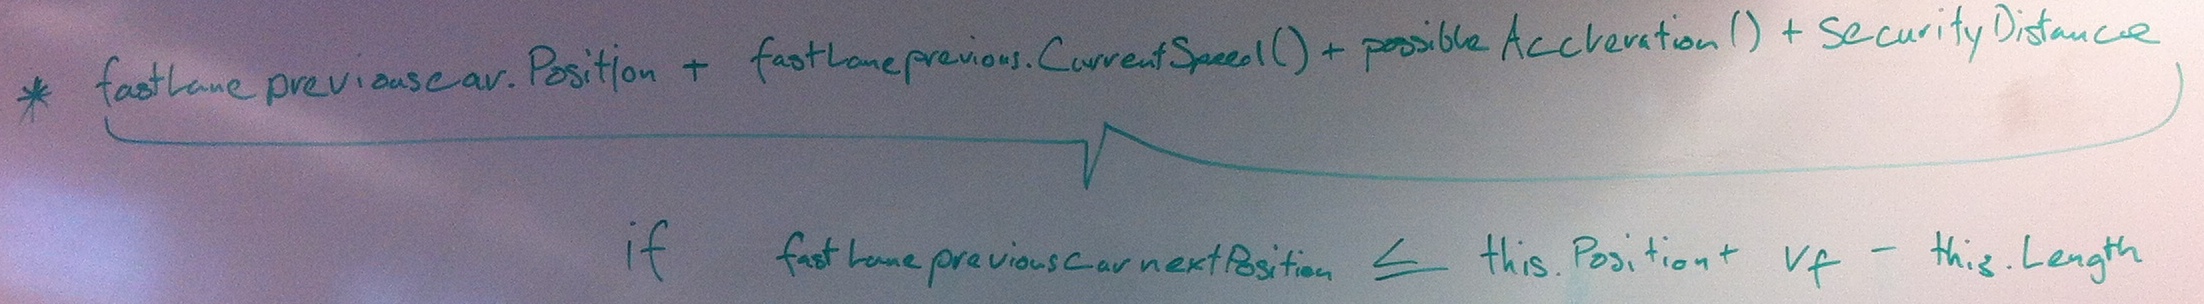 * fastLanepreviouscar.Position + fastLaneprevious.CurrentSpeed() + possibleAccleration() + SecurityDistance
if fastLanepreviousCarnextPosition ≤ this.Position + Vf - this.Length